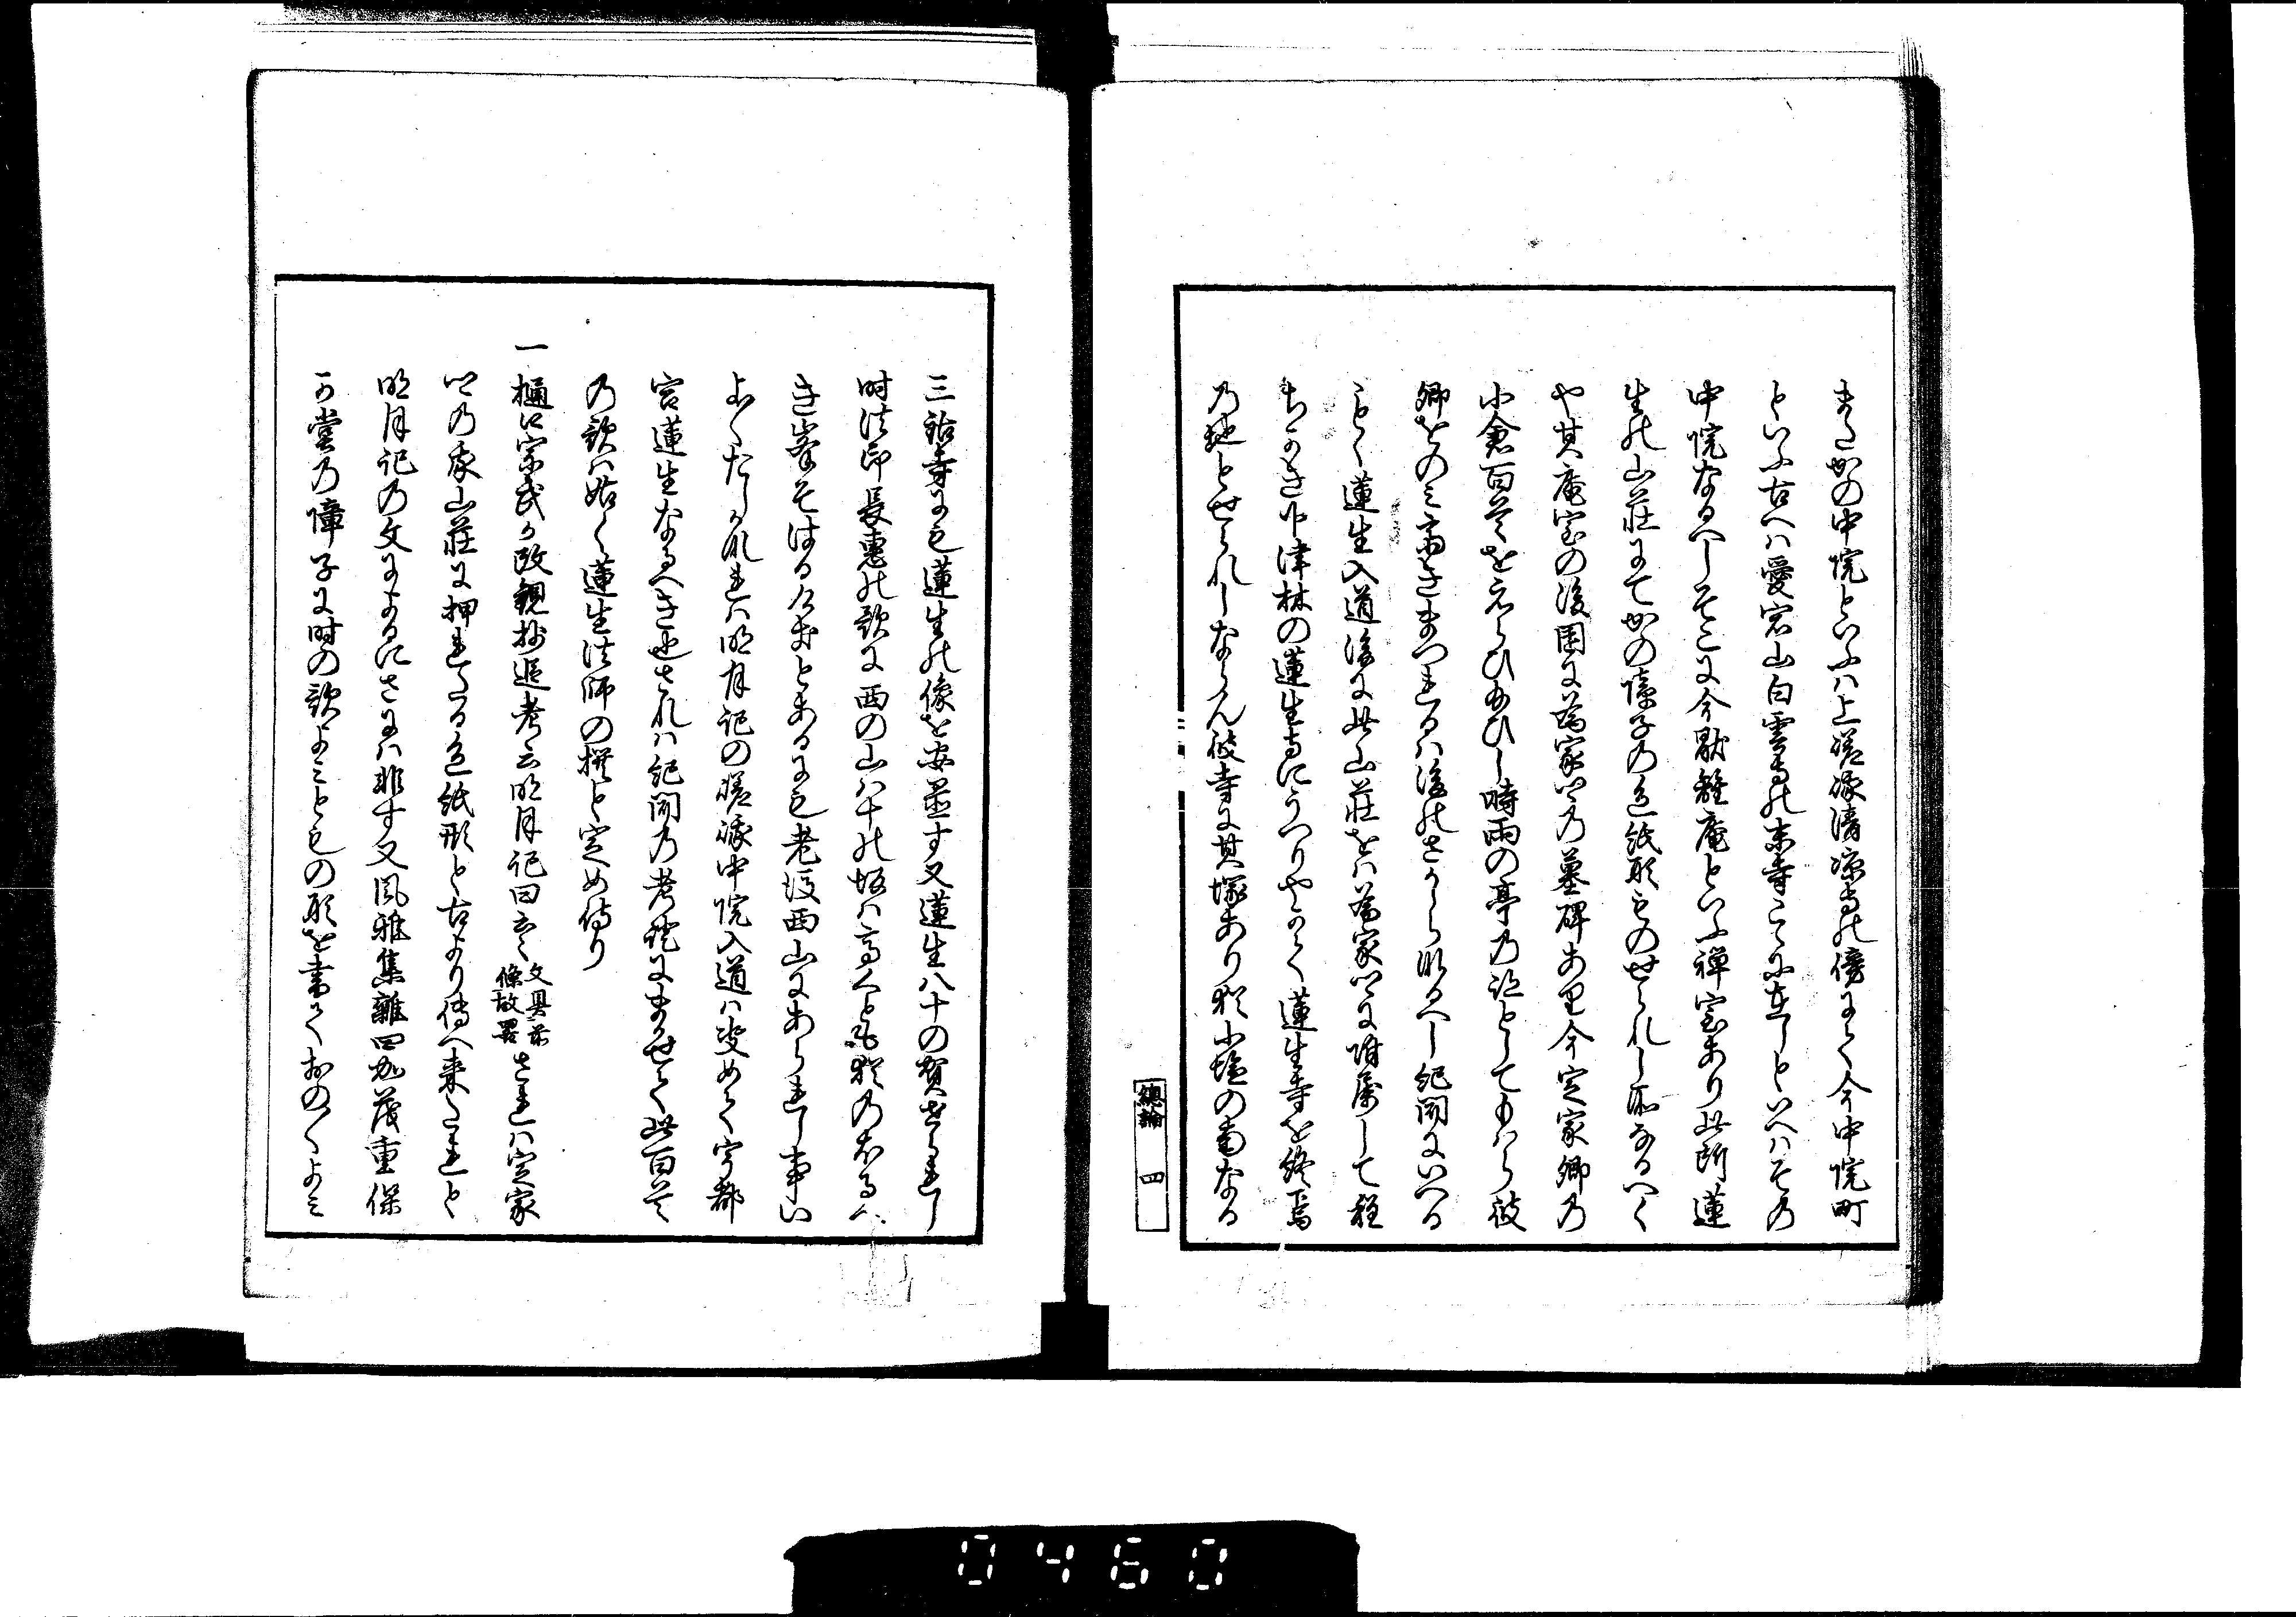 またかの中院といふハ上嵯峨清凉寺の傍にて今中院町
といふ古へハ愛宕山白雲寺の末寺こゝに在しといへハその
中院なるへしそこに今厭離庵といふ禅室あり此所蓮
生の山荘にてかの障子の色紙形ものせられし所なるへく
や其庵室の後園に為家卿の墓碑あり里今定家卿の
小倉百首をえらひ給ひし時雨の亭の跡としてもハら彼
卿をのミ斎きまつれるハ後のさかしら那るへし紀聞にいへる
ことく蓮生入道後に此山荘をハ為家卿に附属して程
ちかき小津林の蓮生寺にうつりやかて蓮生寺を終焉
の地とせられしならん彼寺に其塚あり猶小塩の南なる
總論 四
三鈷寺にも蓮生の像を安置す又蓮生八十の賀せられし
時法印長恵の歌に西の山ハ十の坂ハ高くとも猶のほるへ
き峯そはるけきとあるにも老後西山にありし事い
よゝたしか那れハ明月記の嵯峨中院入道ハ定めて宇都
宮蓮生なるへき也されハ紀聞の考證にまかせて此百首
の歌ハ姑く蓮生法師の撰と定め侍り
一樋口宗武か改観抄追考云明月記曰云々 文具前條故畧 されハ定家
卿の家山荘に押れたる色紙形と古より傳へ来たれと
明月記の文によるにさにハ非す又風雅集雜四加茂重保
か堂の障子に時の歌よミともの形を書ておの〱よミ
0460